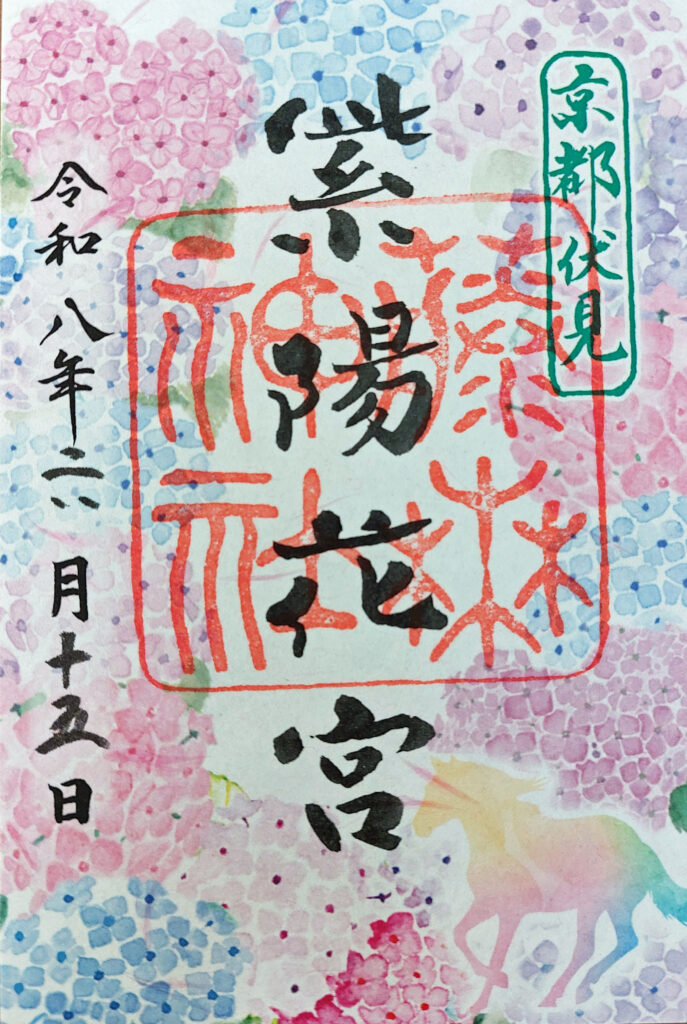 京都伏見
紫陽花宮
藤森
神社
令和八年六月十五日